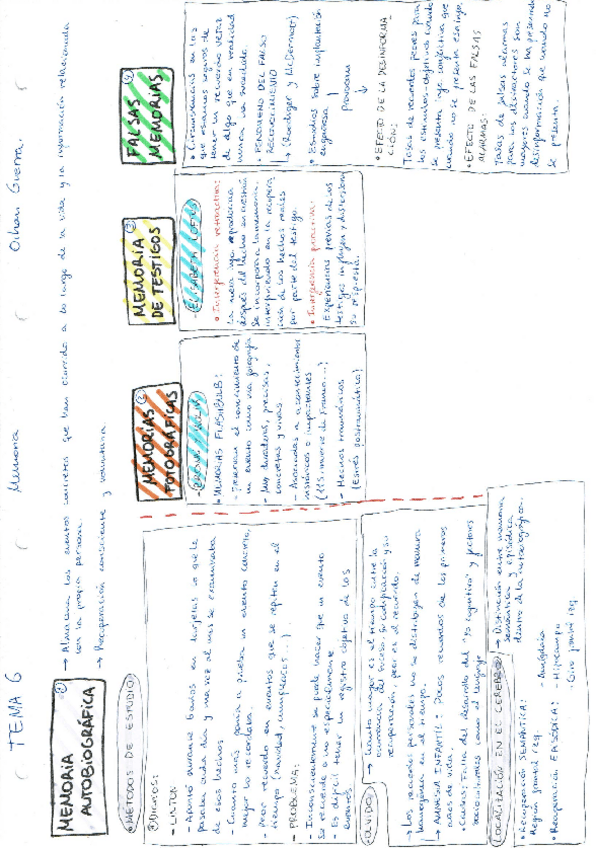 TEMA 6
Memoria
Oihan Guerra.
① MEMORIA
AUTOBIOGRÁFICA
→ Almacena los eventos concretos que han ocurrido a lo largo de la vida y la información relacionada
con la propia persona.
→ Recuperación consciente y voluntaria.
• MÉTODOS DE ESTUDIO
① DIARIOS:
- LINTON
- Apuntó durante
en tarjetas lo que le
pasaba cada día y una vez al mes se examinaba
de esos hechos
- Cuanto más ponía a prueba un evento concreto,
mejor lo recordaba.
- Peor recuerdo en eventos que se repiten en el
tiempo (navidad, cumpleaños...)
- PROBLEMA:
- Inconscientemente se puede hacer que un evento
se recuerde o no especialmente
- Es difícil tener un registro objetivo de los
eventos
• OLVIDO
→ Cuanto mayor es el tiempo entre la
ocurrencia del suceso, su codificación y su
recuperación, peor es el recuerdo.
→ Los recuerdos personales no se distribuyen de manera
homogénea en el tiempo.
→ AMNESIA INFANTIL: Pocos recuerdos de los primeros
años de vida.
• Causas: Falta del desarrollo del "yo cognitivo" y factores
socioculturales como el lenguaje
LOCALIZACIÓN EN EL CEREBRO
→ Distinción entre memoria
semántica y episódica
dentro de la autobiográfica.
• Recuperación SEMÁNTICA:
Región frontal izq.
• Recuperación EPISÓDICA:
- Amígdala
- Hipocampo
- Giro frontal izq
② MEMORIAS
FOTOGRÁFICAS
• MEMORIAS FLASHBULB:
un evento como una fotografía
- Muy duraderas, precisas,
concretas y vivas
- Asociadas a acontecimientos
históricos o impactantes
(11S, muerte de Franco...)
- Hechos traumáticos
(Estrés postraumático)
③ MEMORIA
DE TESTIGOS
• Interferencia retroactiva:
La nueva info reproducida
después del hecho en cuestión
se incorpora a la memoria,
interfiriendo en la recupera-
ción de los hechos reales
por parte del testigo.
• Interferencia proactiva:
Experiencias previas de los
testigos influyen y distorsionan
su respuesta.
④ FALSAS
MEMORIAS
• Circunstancias en las
que estamos seguros de
tener un recuerdo veraz
de algo que en realidad
nunca ha sucedido.
• FENÓMENO DEL FALSO
RECONOCIMIENTO
↳ (Roediger y McDermott)
• Estudios sobre implantación
engañosa
↓
Provocan
↓
• EFECTO DE LA DESINFORMA-
CIÓN:
Tasas de recuerdos peores para
los estímulos-objetivos cuando
se presenta info conflictiva que
cuando no se presenta esa info.
• EFECTO DE LAS FALSAS
ALARMAS:
Tasas de falsas alarmas
para los distractores son
mayores cuando se ha presentado
desinformación que cuando no
se presenta.